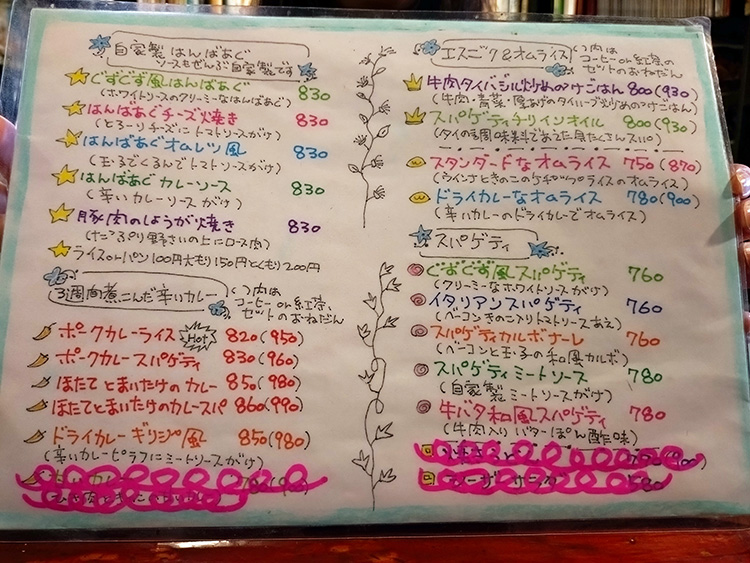 自家製 はんばあぐ
ソースもぜんぶ自家製です
ぐずぐず風はんばあぐ 830
(ホワイトソースのクリーミーなはんばあぐ)
はんばあぐチーズ焼き 830
(とろーりチーズにトマトソースがけ)
はんばあぐオムレツ風 830
(玉子でくるんでトマトソースがけ)
はんばあぐカレーソース 830
(辛いカレーソースがけ)
豚肉のしょうが焼き 830
(たっぷり野さいの上にロース肉)
ライスorパン100円大もり150円とくもり200円
3週間煮こんだ辛いカレー
( )内は
コーヒーor紅茶、
セットのおねだん
ポークカレーライス Hot 820(950)
ポークカレースパゲティ 830(960)
ほたてとまいたけのカレー 850(980)
ほたてとまいたけのカレースパ 860(990)
ドライカレーギリシア風 850(980)
(辛いカレーピラフにミートソースがけ)
エスニック&オムライス
( )内は
コーヒーor紅茶の
セットのおねだん
牛肉タイバジル炒めのっけごはん 800(930)
(牛肉・青菜・厚あげのタイハーブ炒めのっけごはん)
スパゲティチリインオイル 800(930)
(タイの調味料であえた具だくさんスパ)
スタンダードなオムライス 750(870)
(ウインナときのこのケチャップライスのオムライス)
ドライカレーなオムライス 780(900)
(辛いカレーのドライカレーでオムライス)
スパゲティ
ぐずぐず風スパゲティ 760
(クリーミーなホワイトソースがけ)
イタリアンスパゲティ 760
(ベーコンきのこ入りトマトソースあえ)
スパゲティカルボナーレ 760
(ベーコンと玉子の和風カルボ)
スパゲティミートソース 780
(自家製ミートソースがけ)
牛バタ和風スパゲティ 780
(牛肉入りバターぽん酢味)